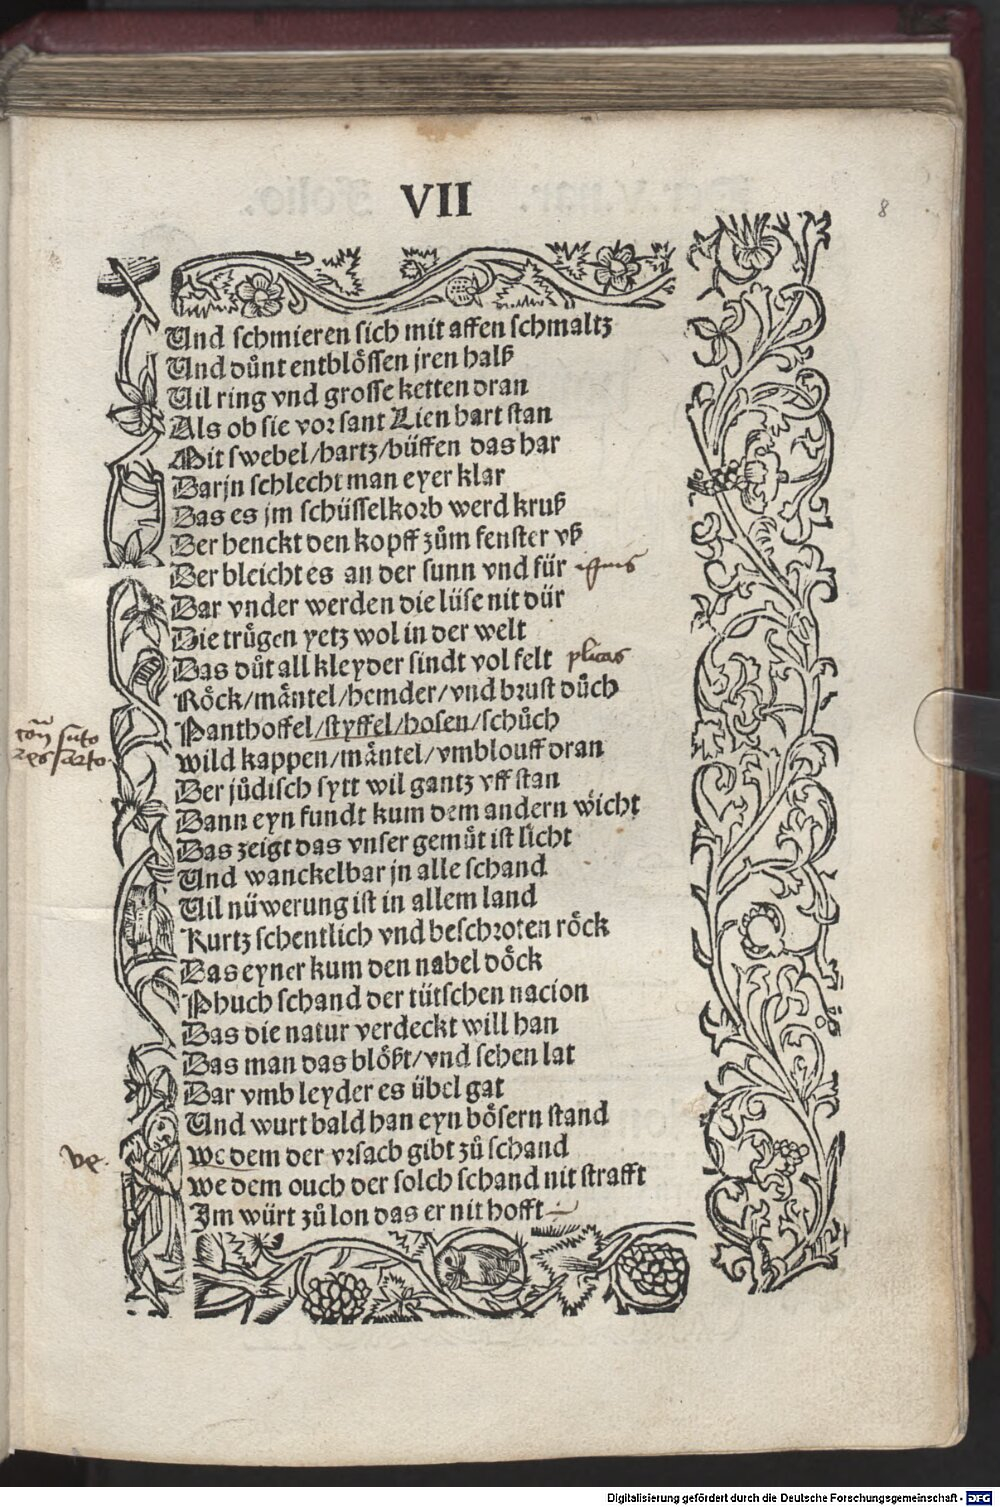 VII
8
Und schmieren sich mit affen schmaltz
Und důnt entblössen jren halß
Uil ring vnd grosse ketten dran
Als ob sie vor sant Lienhart stan
Mit swebel/hartz/büffen das har
Darjn schlecht man eyer klar
Das es jm schüsselkorb werd kruß
Der henckt den kopff zům fenster vß
Der bleicht es an der sunn vnd für
Dar vnder werden die lüse nit dür
Die trůgen yetz wol in der welt
Das důt all kleyder sindt vol felt plicas
Röck/mäntel/hemder/vnd brust důch
Panthoffel/styffel/hosen/schůch
wild kappen/mäntel/vmblouff dran
Der jüdisch sytt wil gantz vff stan
Dann eyn fundt kum dem andern wicht
Das zeigt das vnser gemüt ist licht
Und wanckelbar jn alle schand
Uil nüwerung ist in allem land
Kurtz schentlich vnd beschroten röck
Das eyner kum den nabel döck
Phuch schand der tütschen nacion
Das die natur verdeckt will han
Das man das blößt/vnd sehen lat
Dar vmb leyder es übel gat
Und wurt bald han eyn bösern stand
ve.
we dem der vrsach gibt zů schand
we dem ouch der solch schand nit strafft
Im würt zů lon das er nit hofft
Digitalisierung gefördert durch die Deutsche Forschungsgemeinschaft - DFG